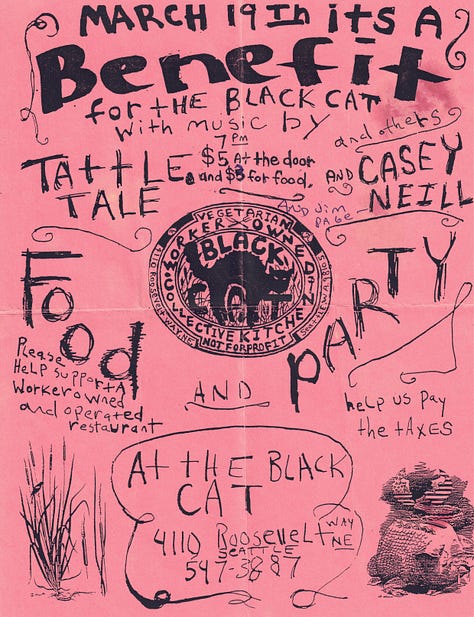 MARCH 19th its A
Benefit
for tHE BLACK CAT
with music by
7 PM
and others
$5 At the door
and $3 for food.
TATTLE
TALE
AND CASEY
NEILL
AND Jim
PAGE
VEGETARIAN
WORKER OWNED
BLACK
CAT
COLLECTIVE KITCHEN
NOT FOR PROFIT
Food
PARTY
Please
HELP support A
Worker owned
and operated
restaurant
AND
help us pay
the tAXES
At tHE BLACK
CAT
4110 Roosevelt WAY NE
SEATTLE
547-3887